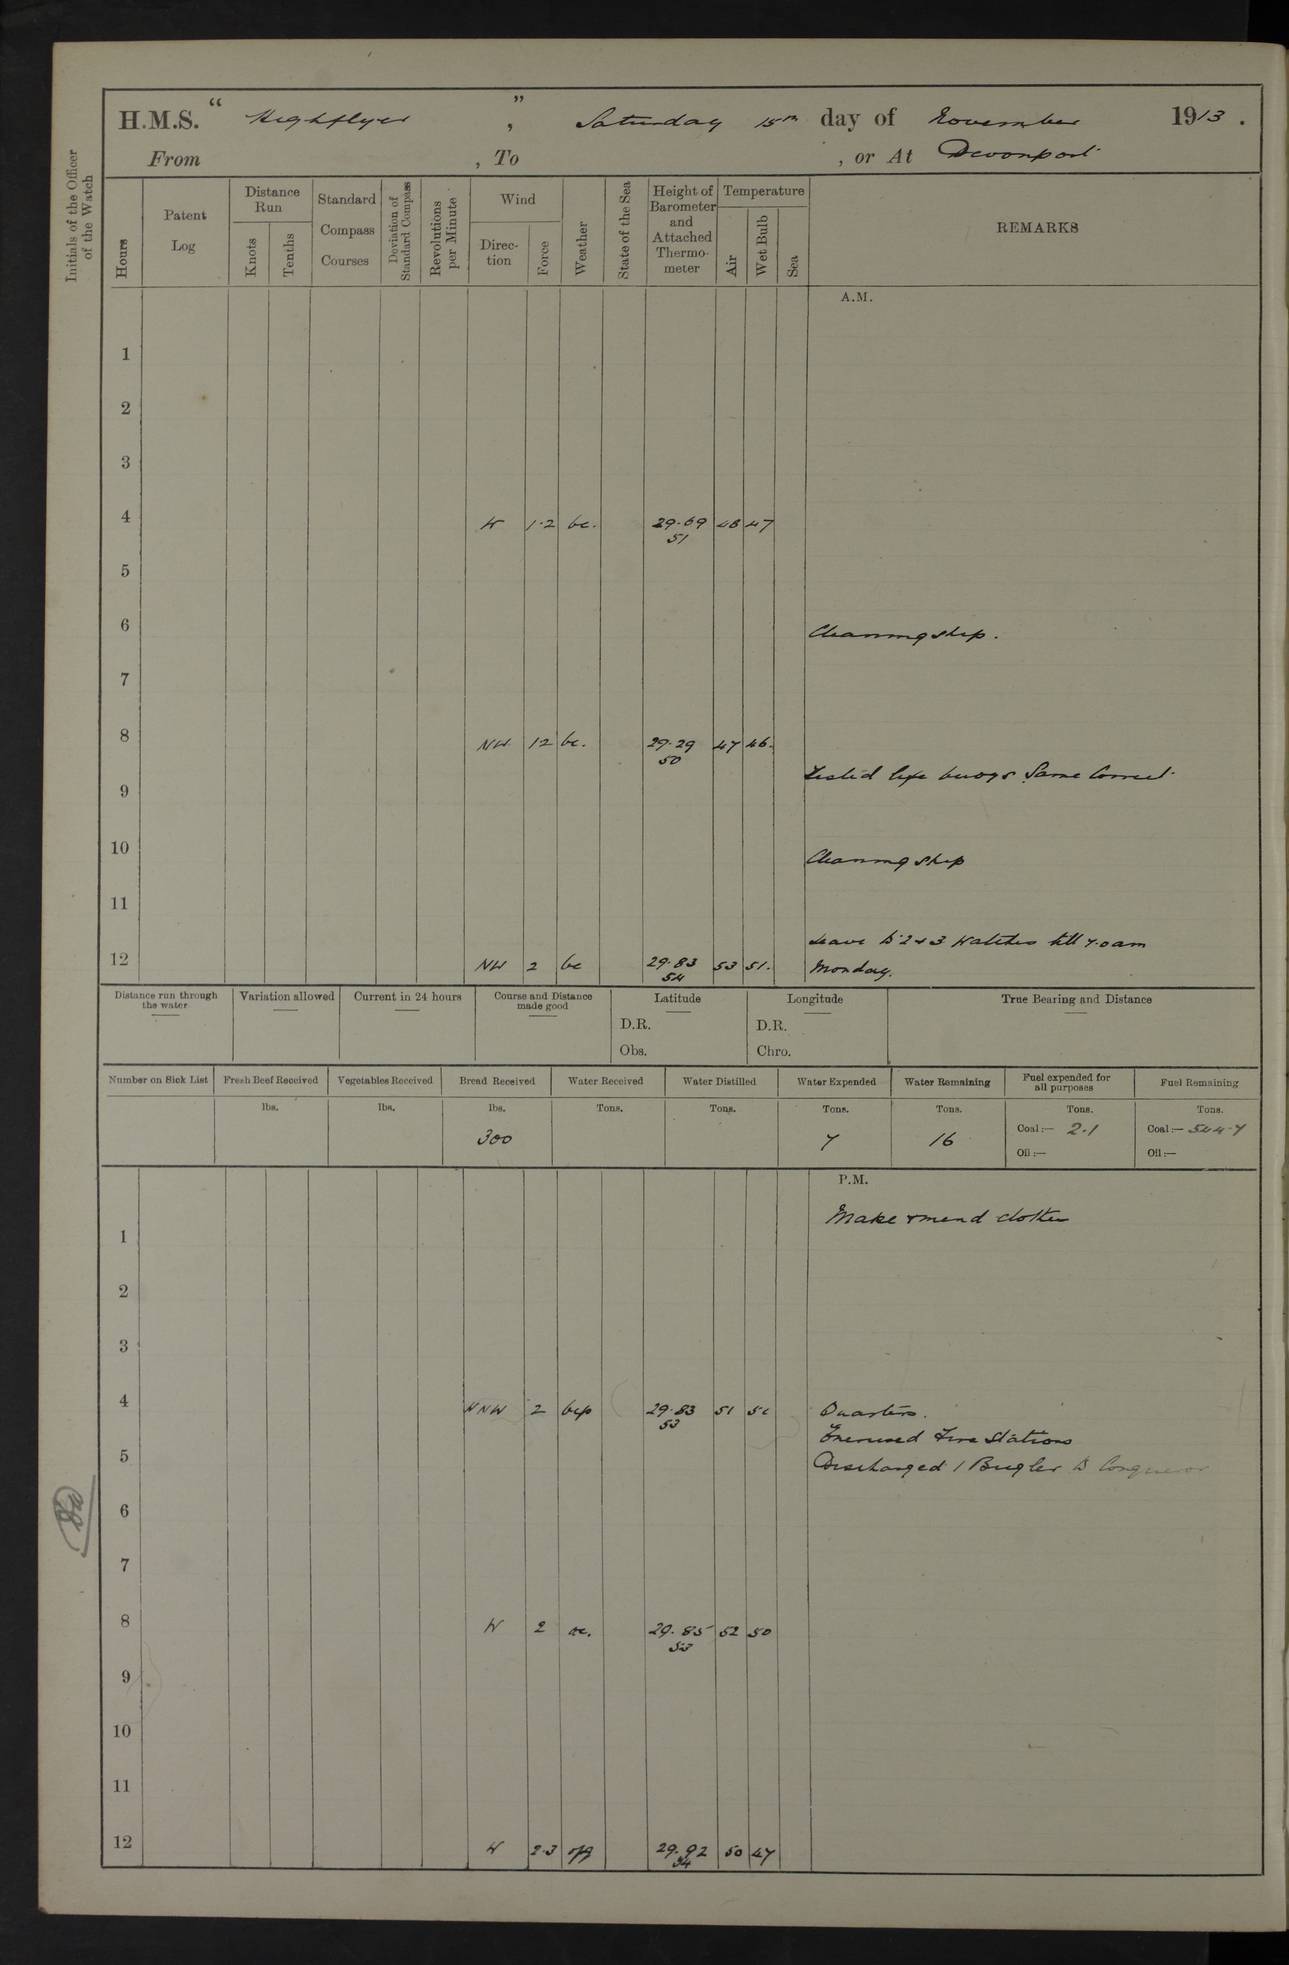 H.M.S. “ Highflyer ” , Saturday 15th day of November 1913.
From , To , or At Devonport
Initials of the Officer of the Watch
Hours
Patent Log
Distance Run
Knots
Tenths
Standard Compass Courses
Deviation of Standard Compass
Revolutions per Minute
Wind
Direc-tion
Force
Weather
State of the Sea
Height of Barometer and Attached Thermo-meter
Temperature
Air
Wet Bulb
Sea
REMARKS
A.M.
1
2
3
4 W 1·2 bc. 29·69 48 47
51
5
6 Cleaning ship.
7
8 NW 1 2 bc. 29·29 47 46.
50
Tested life buoys Same Correct.
9
10 Cleaning ship
11
Leave to 2 & 3 Watches till 7.0 am
12 NW 2 bc 29·83 53 51. Monday.
54
Distance run through the water
Variation allowed
Current in 24 hours
Course and Distance made good
Latitude
D.R.
Obs.
Longitude
D.R.
Chro.
True Bearing and Distance
Number on Sick List
Fresh Beef Received
lbs.
Vegetables Received
lbs.
Bread Received
lbs.
300
Water Received
Tons.
Water Distilled
Tons.
Water Expended
Tons.
7
Water Remaining
Tons.
16
Fuel expended for all purposes
Tons.
Coal :— 2·1
Oil :—
Fuel Remaining
Tons.
Coal :— 544·7
Oil :—
P.M.
Make & mend clothes
1
2
3
4 NNW 2 bcp 29·83 51 Quarters.
53
Exercised Fire Stations
5 Discharged 1 Bugler to Conqueror
6
7
8 W 2 29·85 52 50
53
9
10
11
12 W 2·3 29.92 50 47
54